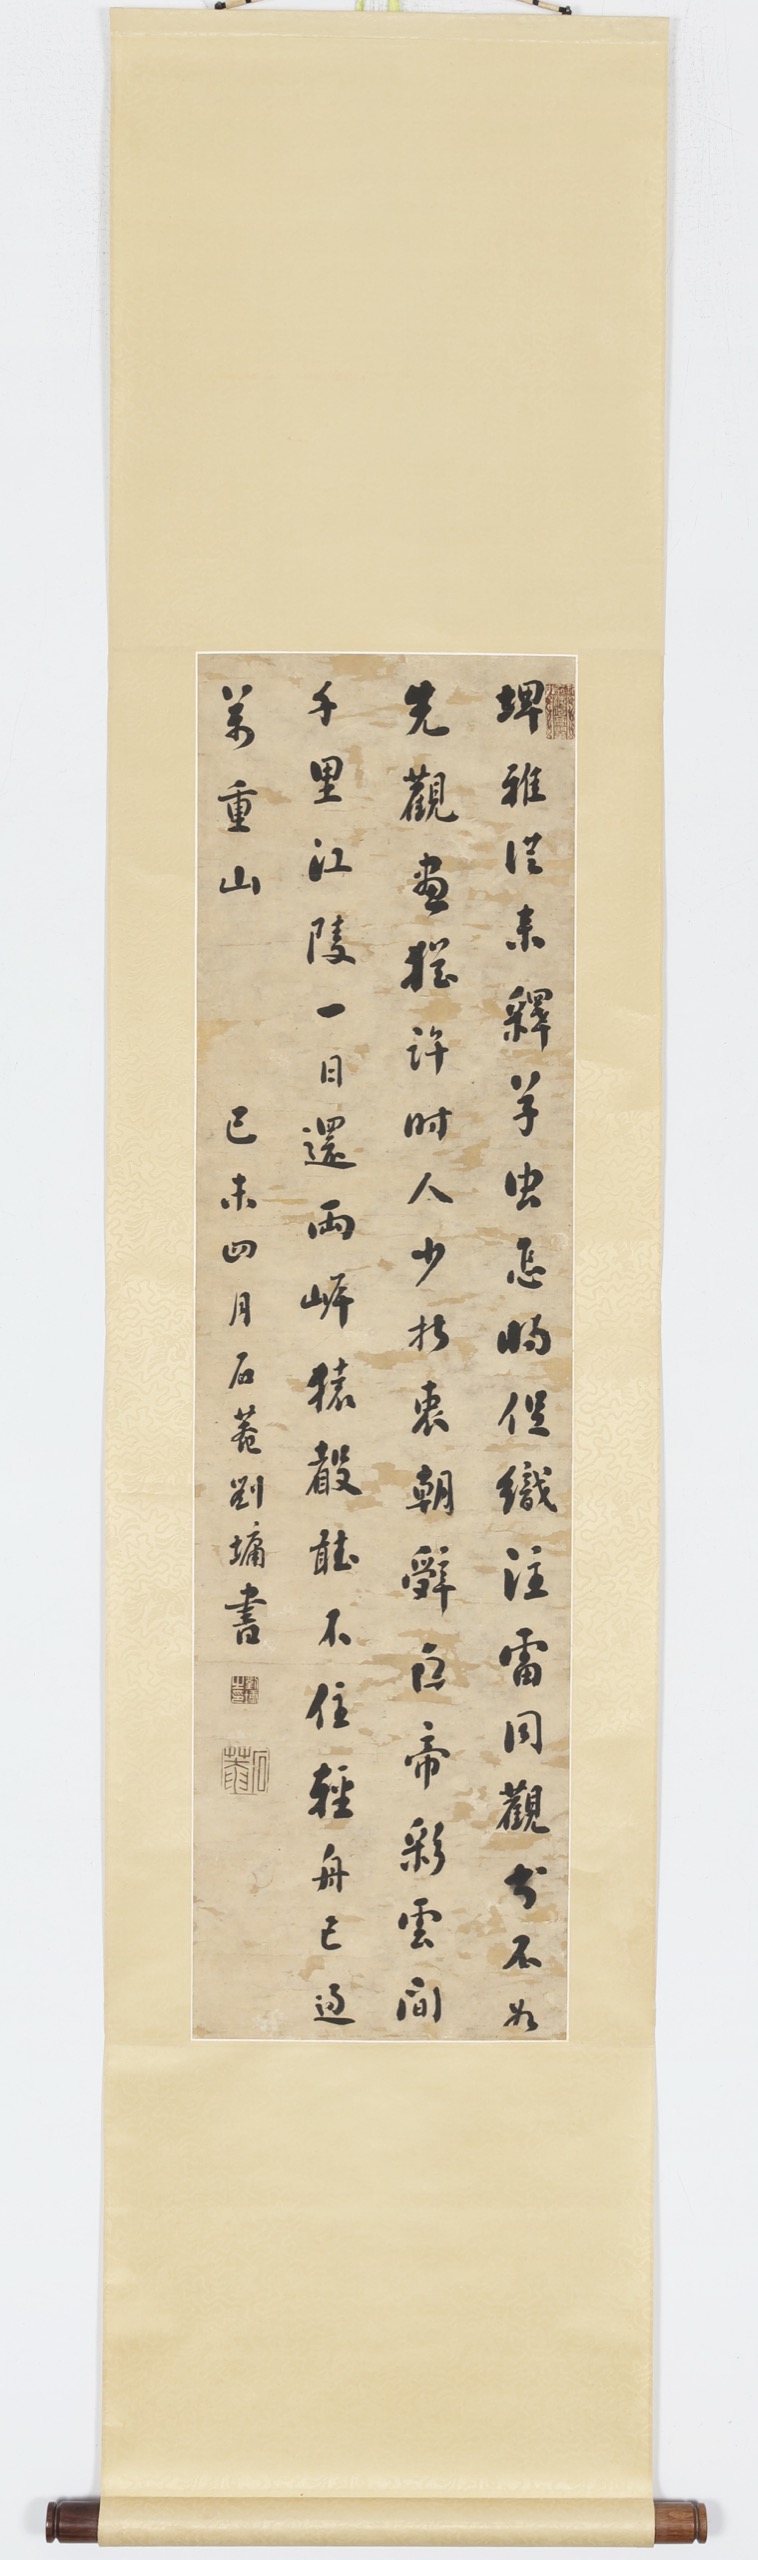 埤雅從来釋草虫怎將促織注雷同觀书不如
先觀畫猶許时人少折衷朝辭白帝彩雲間
千里江陵一日還兩岸猿聲聽不住輕舟已過
萬重山
己未四月石菴劉墉書
劉墉之印
石菴